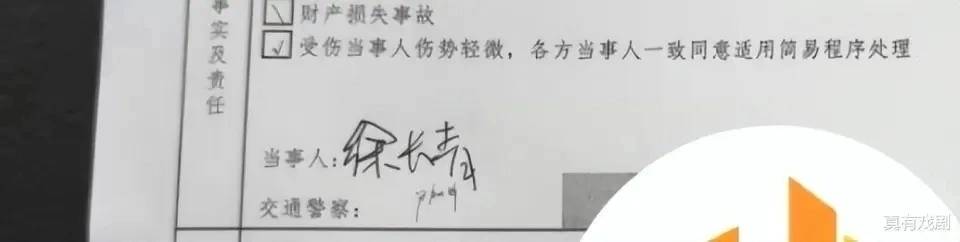 事实及责任
财产损失事故
√ 受伤当事人伤势轻微，各方当事人一致同意适用简易程序处理
当事人：徐长青
交通警察：
真有戏剧